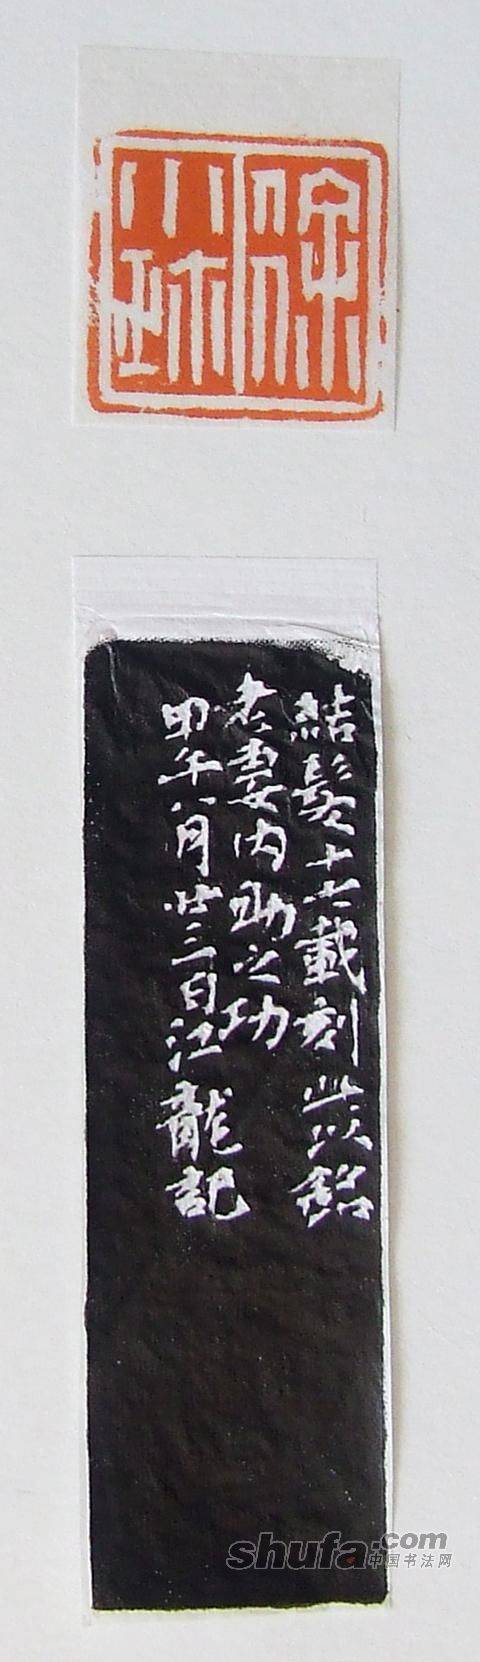 徐
小
結髮十六載刻此以銘
老妻内助之功
甲午八月廿三日江龍記
shufa.com
中国书法网